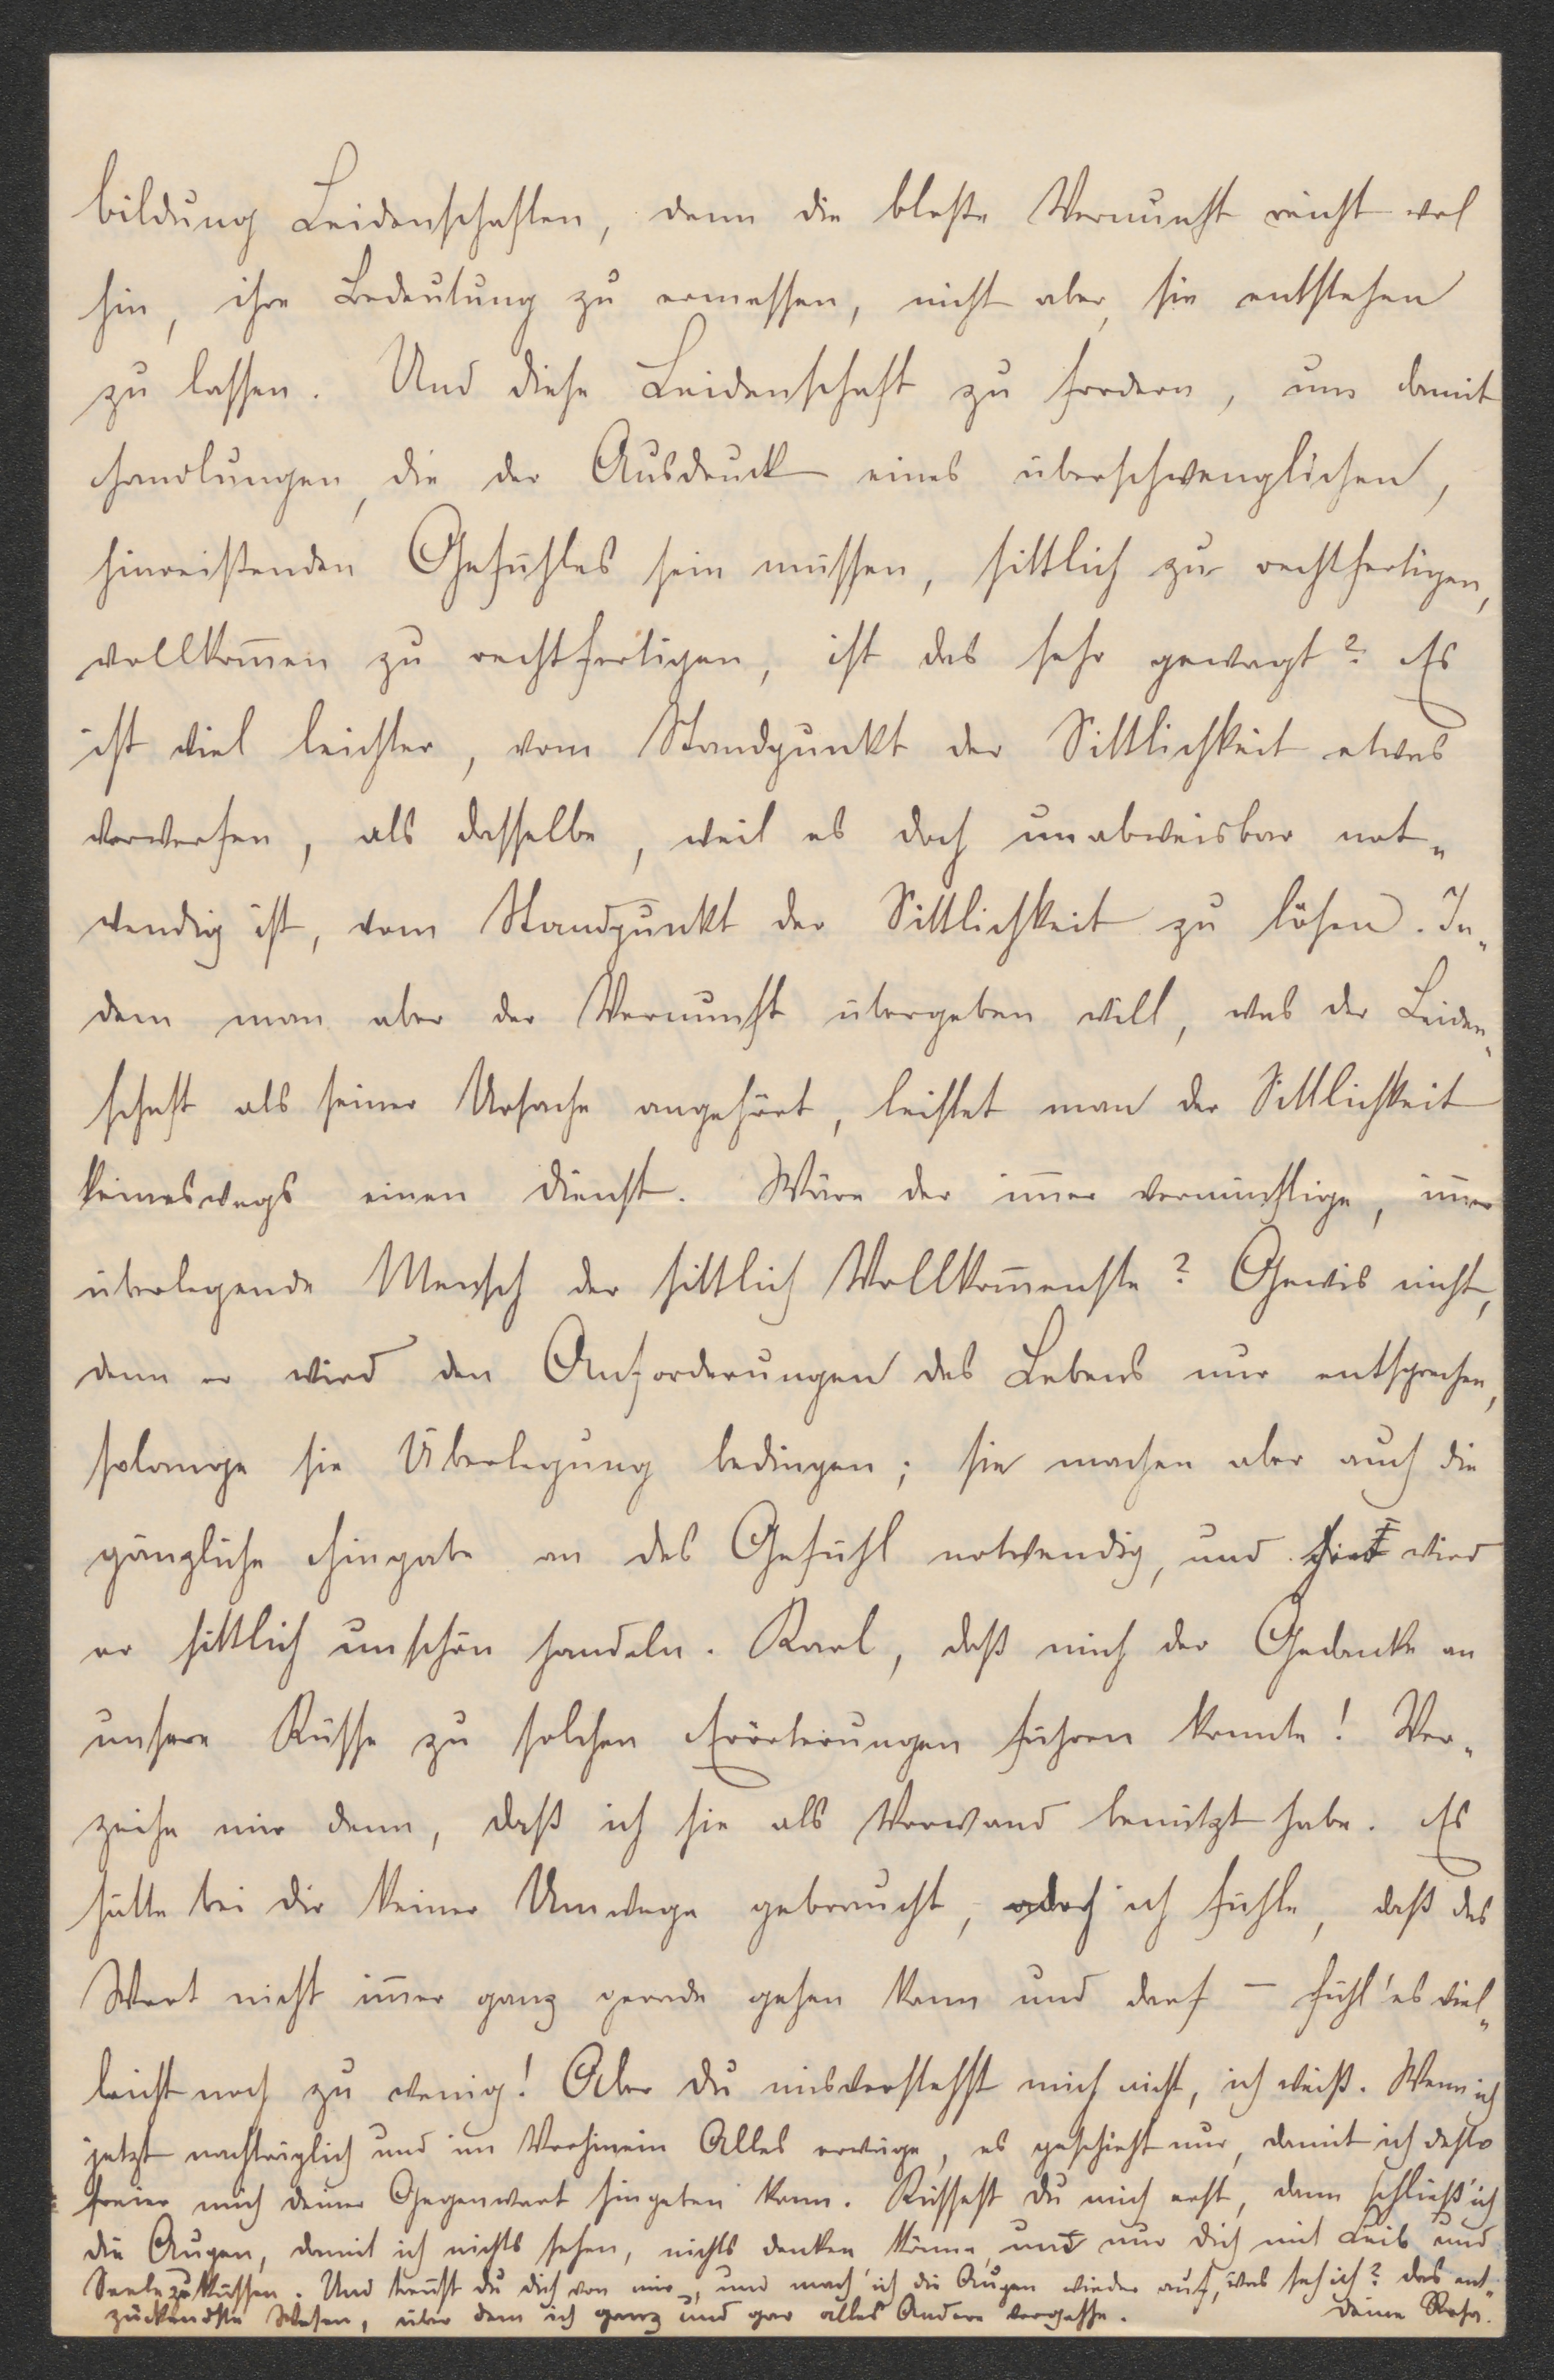 bildung Leidenschaften, denn die bloße Vernunft reicht wol
hin, ihre Bedeutung zu ermessen, nicht aber, sie entstehen
zu lassen. Und diese Leidenschaft zu fordern, um damit
Handlungen, die der Ausdruck eines überschwenglichen,
hinreißenden Gefühles sein müssen, sittlich zu rechtfertigen,
vollkom̅en zu rechtfertigen, ist das sehr gewagt? Es
ist viel leichter, vom Standpunkt der Sittlichkeit etwas
verwerfen, als dasselbe, weil es doch unabweisbar not„
wendig ist, vom Standpunkt der Sittlichkeit zu lösen. In„
dem man aber der Vernunft übergeben will, was der Leiden„
schaft als seiner Ursache angehört, leistet man der Sittlichkeit
keineswegs einen Dienst. Wäre der im̅er vernünftige, im̅er
überlegende Mensch der sittlich Vollkom̅enste? Gewis nicht,
denn er wird den Anforderungen des Lebens nur entsprechen,
solange sie Überlegung bedingen; sie machen aber auch die
gänzliche Hingabe an das Gefühl notwendig, und wird
er sittlich unschön handeln. Karl, daß mich der Gedanke an
unsere Küsse zu solchen Erörterungen führen konnte! Ver„
zeihe mir denn, daß ich sie als Vorwand benützt habe. Es
hätte bei dir keiner Umwege gebraucht, doch ich fühle, daß das
Wort nicht im̅er ganz gerade gehen kann und darf – fühl' es viel„
leicht noch zu wenig! Aber du misverstehst mich nicht, ich weiß. Wenn ich
jetzt nachträglich und im Vorhinein Alles erwäge, es geschieht nur, damit ich desto
freier mich deiner Gegenwart hingeben kann. Küssest du mich erst, dann schließ' ich
die Augen, damit ich nichts sehen, nichts denken könne und nur dich mit Leib und
Seele zu küssen. Und trennst du dich von mir, und mach' ich die Augen wieder auf, was seh ich? das ent„
zückendste Wesen, über dem ich ganz und gar alles Andere vergesse. Deine Rosa.